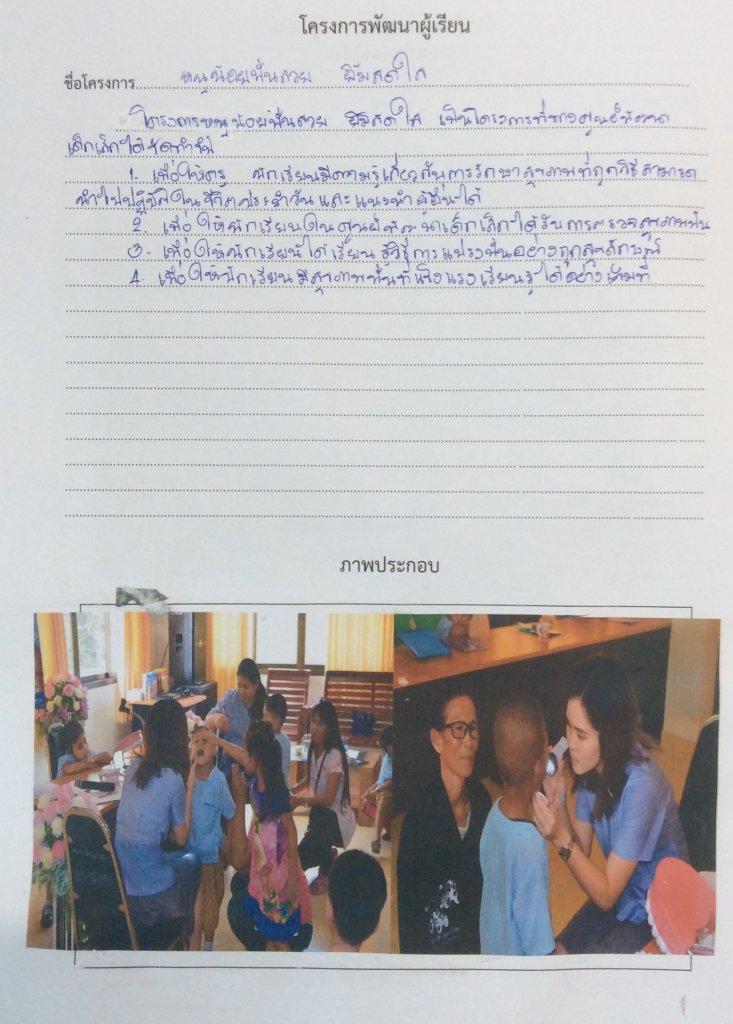 โครงการพัฒนาผู้เรียน
ชื่อโครงการ หนูน้อยฟันสวย ยิ้มสดใส
โครงการหนูน้อยฟันสวย ยิ้มสดใส เป็นโครงการที่ทางศูนย์พัฒนา
เด็กเล็กได้จัดทำขึ้น
1. เพื่อให้ครู นักเรียนมีความรู้เกี่ยวกับการรักษาสุขภาพที่ถูกวิธีสามารถ
นำไปปฏิบัติในชีวิตประจำวันและแนะนำผู้อื่นได้
2. เพื่อให้นักเรียนในศูนย์พัฒนาเด็กเล็กได้รับการตรวจสุขภาพฟัน
3. เพื่อให้นักเรียนได้เรียนรู้วิธีการแปรงฟันอย่างถูกสุขลักษณะ
4. เพื่อให้นักเรียนมีสุขภาพฟันที่แข็งแรงเรียนรู้ได้อย่างเต็มที่
ภาพประกอบ